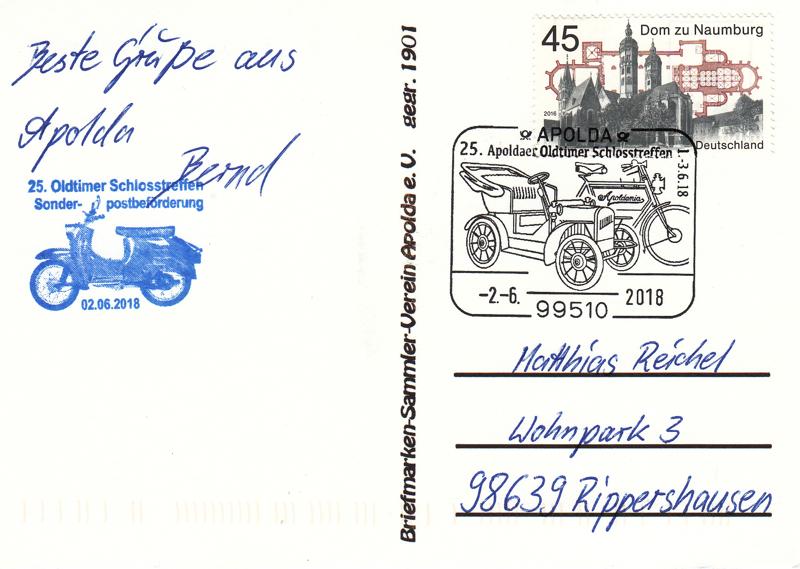 Beste Grüße aus
Apolda
Bernd
25. Oldtimer Schlosstreffen
Sonder- postbeförderung
02.06.2018
Briefmarken-Sammler-Verein Apolda e. V. gegr. 1901
45 Dom zu Naumburg
2016
Deutschland
APOLDA
25. Apoldaer Oldtimer Schlosstreffen
1.-3.6.18
Apoldania
-2.-6. 2018
99510
Matthias Reichel
Wohnpark 3
98639 Rippershausen